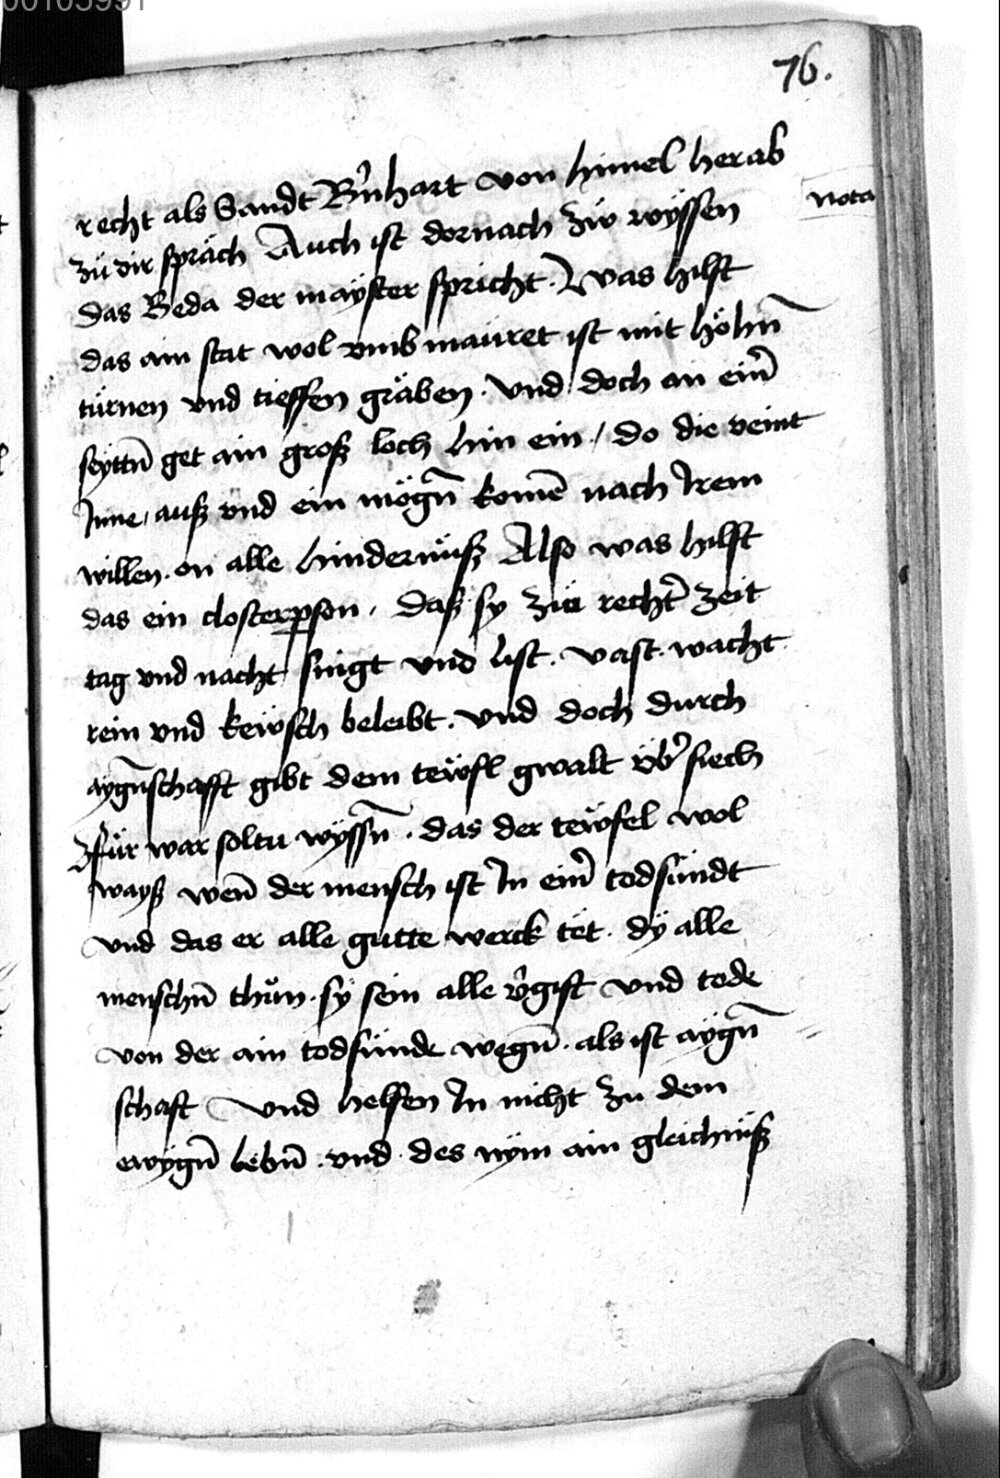 00105991
76.
recht als Sandt Bn̄hart von himel herab
zü dir spräch Auch ist dornach zw wÿssen
nota
das Beda der maÿster spricht. Was hilft
das ain stat wol vmb mauret ist mit höhn̄
türnen vnd tieffen gräben. vnd doch an ein̄
seyttn̄ get ain groß loch hin ein / do die veint
Inne / auß vnd ein mögn̄ komē nach Irem
willen. on alle hindernüß Also was hilft
das ein closterꝑson. daß sy zw recht̄ zeit
tag vnd nacht singt vnd list. vast. wacht.
rein vnd kewsch beleibt. vnd doch durch
aÿgn̄schafft gibt dem tewfl gwalt üb̄ siech
Zfür war soltu wÿssn̄. das der tewfel wol
wayß wen̄ der mensch ist In ein̄ todsündt
vnd das er alle gutte werck tet. dÿ alle
menschn̄ thün. sÿ sein alle v̄gift vnd tode
von der ain todsünde wegn̄. als ist aÿgn̄
schaft vnd helfen In nicht zu dem
ewÿgn̄ lebn̄. vnd des nÿm ain gleichnüß